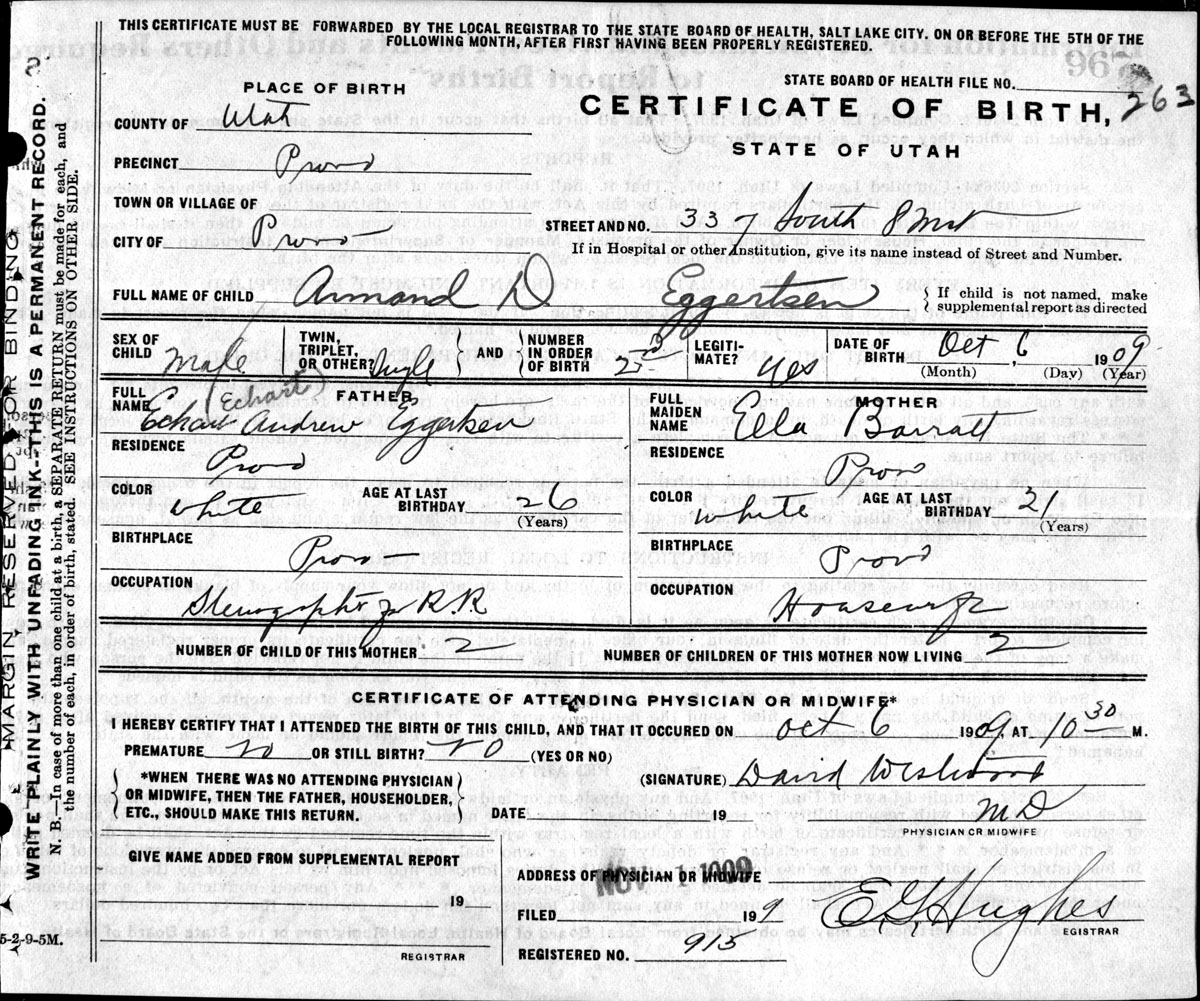 THIS CERTIFICATE MUST BE FORWARDED BY THE LOCAL REGISTRAR TO THE STATE BOARD OF HEALTH, SALT LAKE CITY. ON OR BEFORE THE 5TH OF THE
FOLLOWING MONTH, AFTER FIRST HAVING BEEN PROPERLY REGISTERED.
PLACE OF BIRTH
STATE BOARD OF HEALTH FILE NO.
263
CERTIFICATE OF BIRTH,
STATE OF UTAH
COUNTY OF Utah
PRECINCT Provo
TOWN OR VILLAGE OF
CITY OF Provo
STREET AND NO. 337 South
If in Hospital or other Institution, give its name instead of Street and Number.
FULL NAME OF CHILD Armand D Eggertsen
{ If child is not named, make
supplemental report as directed
SEX OF CHILD Male
TWIN, TRIPLET, OR OTHER? Single
} AND {
NUMBER IN ORDER OF BIRTH 2nd
LEGITI-MATE? Yes
DATE OF BIRTH Oct 6, 1909
(Month) (Day) (Year)
FATHER
FULL NAME Echart Andrew Eggertsen
(Echart)
RESIDENCE Provo
COLOR white
AGE AT LAST BIRTHDAY 26
(Years)
BIRTHPLACE Provo
OCCUPATION
Stenographer R.R.
MOTHER
FULL MAIDEN NAME Ella Barratt
RESIDENCE Provo
COLOR White
AGE AT LAST BIRTHDAY 21
(Years)
BIRTHPLACE Provo
OCCUPATION Housewife
NUMBER OF CHILD OF THIS MOTHER 2
NUMBER OF CHILDREN OF THIS MOTHER NOW LIVING 2
CERTIFICATE OF ATTENDING PHYSICIAN OR MIDWIFE*
I HEREBY CERTIFY THAT I ATTENDED THE BIRTH OF THIS CHILD, AND THAT IT OCCURED ON Oct 6 1909, AT 10 30 M.
PREMATURE No OR STILL BIRTH? No (YES OR NO)
*WHEN THERE WAS NO ATTENDING PHYSICIAN
OR MIDWIFE, THEN THE FATHER, HOUSEHOLDER,
ETC., SHOULD MAKE THIS RETURN.
(SIGNATURE) David Westwood
MD
DATE 19
PHYSICIAN OR MIDWIFE
GIVE NAME ADDED FROM SUPPLEMENTAL REPORT
19
REGISTRAR
ADDRESS OF PHYSICIAN OR MIDWIFE
NOV 1 1909
FILED 1909
REGISTERED NO. 915
E G Hughes
REGISTRAR
5-2-9-5M.
MARGIN RESERVED FOR BINDING
WRITE PLAINLY WITH UNFADING INK---THIS IS A PERMANENT RECORD.
N. B.—In case of more than one child at a birth, a SEPARATE RETURN must be made for each, and
the number of each, in order of birth, stated. SEE INSTRUCTIONS OTHER SIDE.